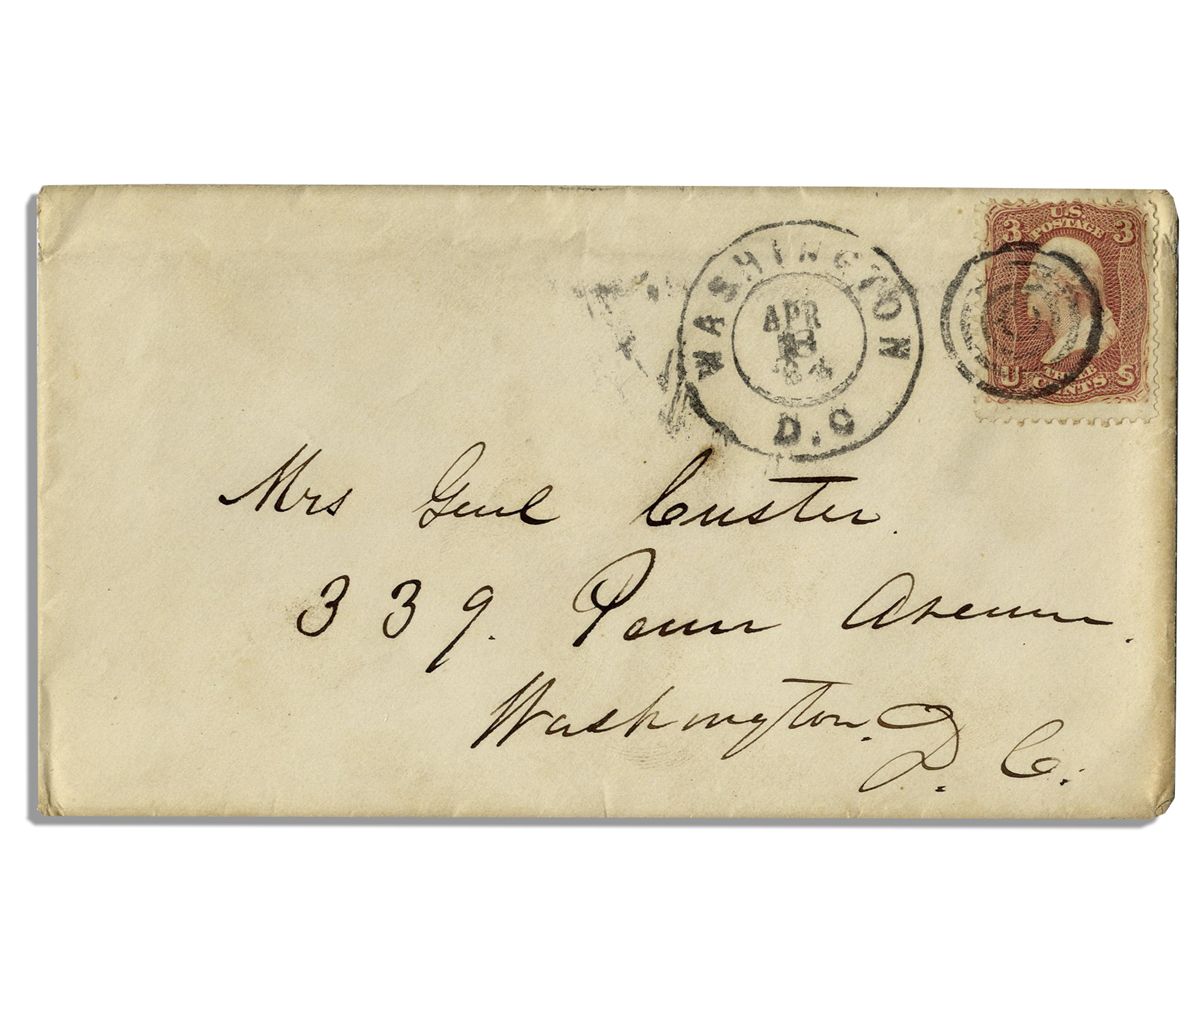 WASHINGTON
APR
D.C
3 U.S. 3
POSTAGE
U THREE S
CENTS
Mrs Genl Custer.
339. Penn Avenue.
Washington. D. C.